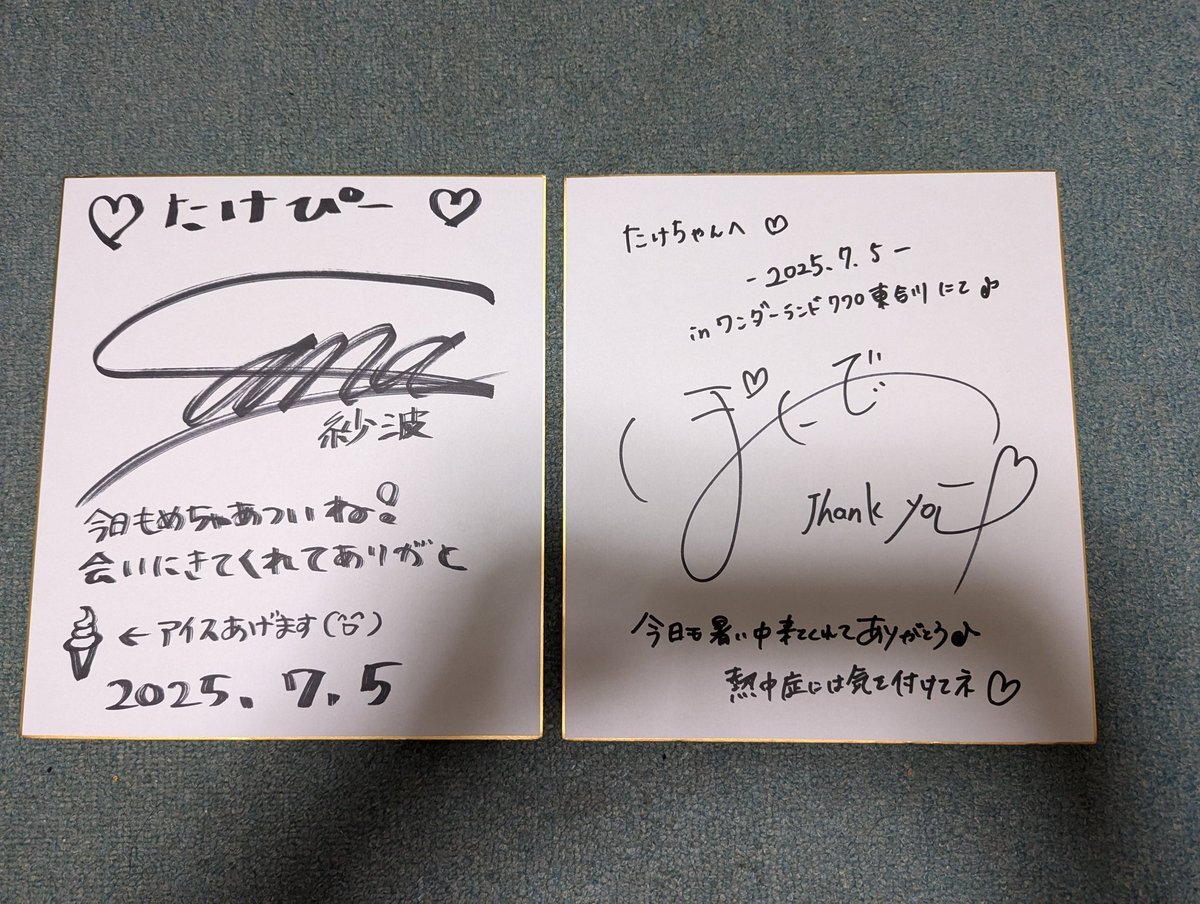 ♡ たけぴー ♡
紗波
今日もめちゃあついね!
会いにきてくれてありがと
← アイスあげます
2025.7.5
たけちゃんへ ♡
-2025.7.5-
in ワンダーランド777の東合川にて♪
Thank you
今日も暑い中来てくれてありがとう♪
熱中症には気を付けてネ♡